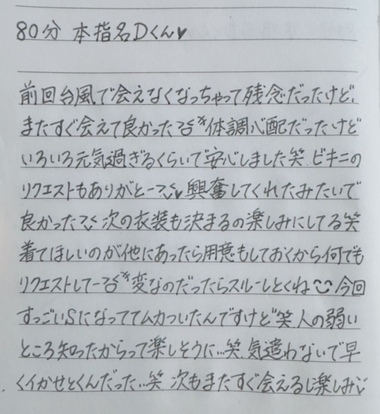 80分 本指名Dくん♥
前回台風で会えなくなっちゃって残念だったけど、
またすぐ会えて良かった 体調心配だったけど
いろいろ元気過ぎるくらいで安心しました笑 ビキニの
リクエストもありがとー♥ 興奮してくれたみたいで
良かった 次の衣装も決まるの楽しみにしてる笑
着てほしいのが他にあったら用意もしておくから何でも
リクエストしてー 変なのだったらスルーしとくね 今回
すっごいSになっててムカついたんですけど笑 人の弱い
ところ知ったからって楽しそうに…笑 気遣わないで早
くイかせとくんだった…笑 次もまたすぐ会えるし楽しみ